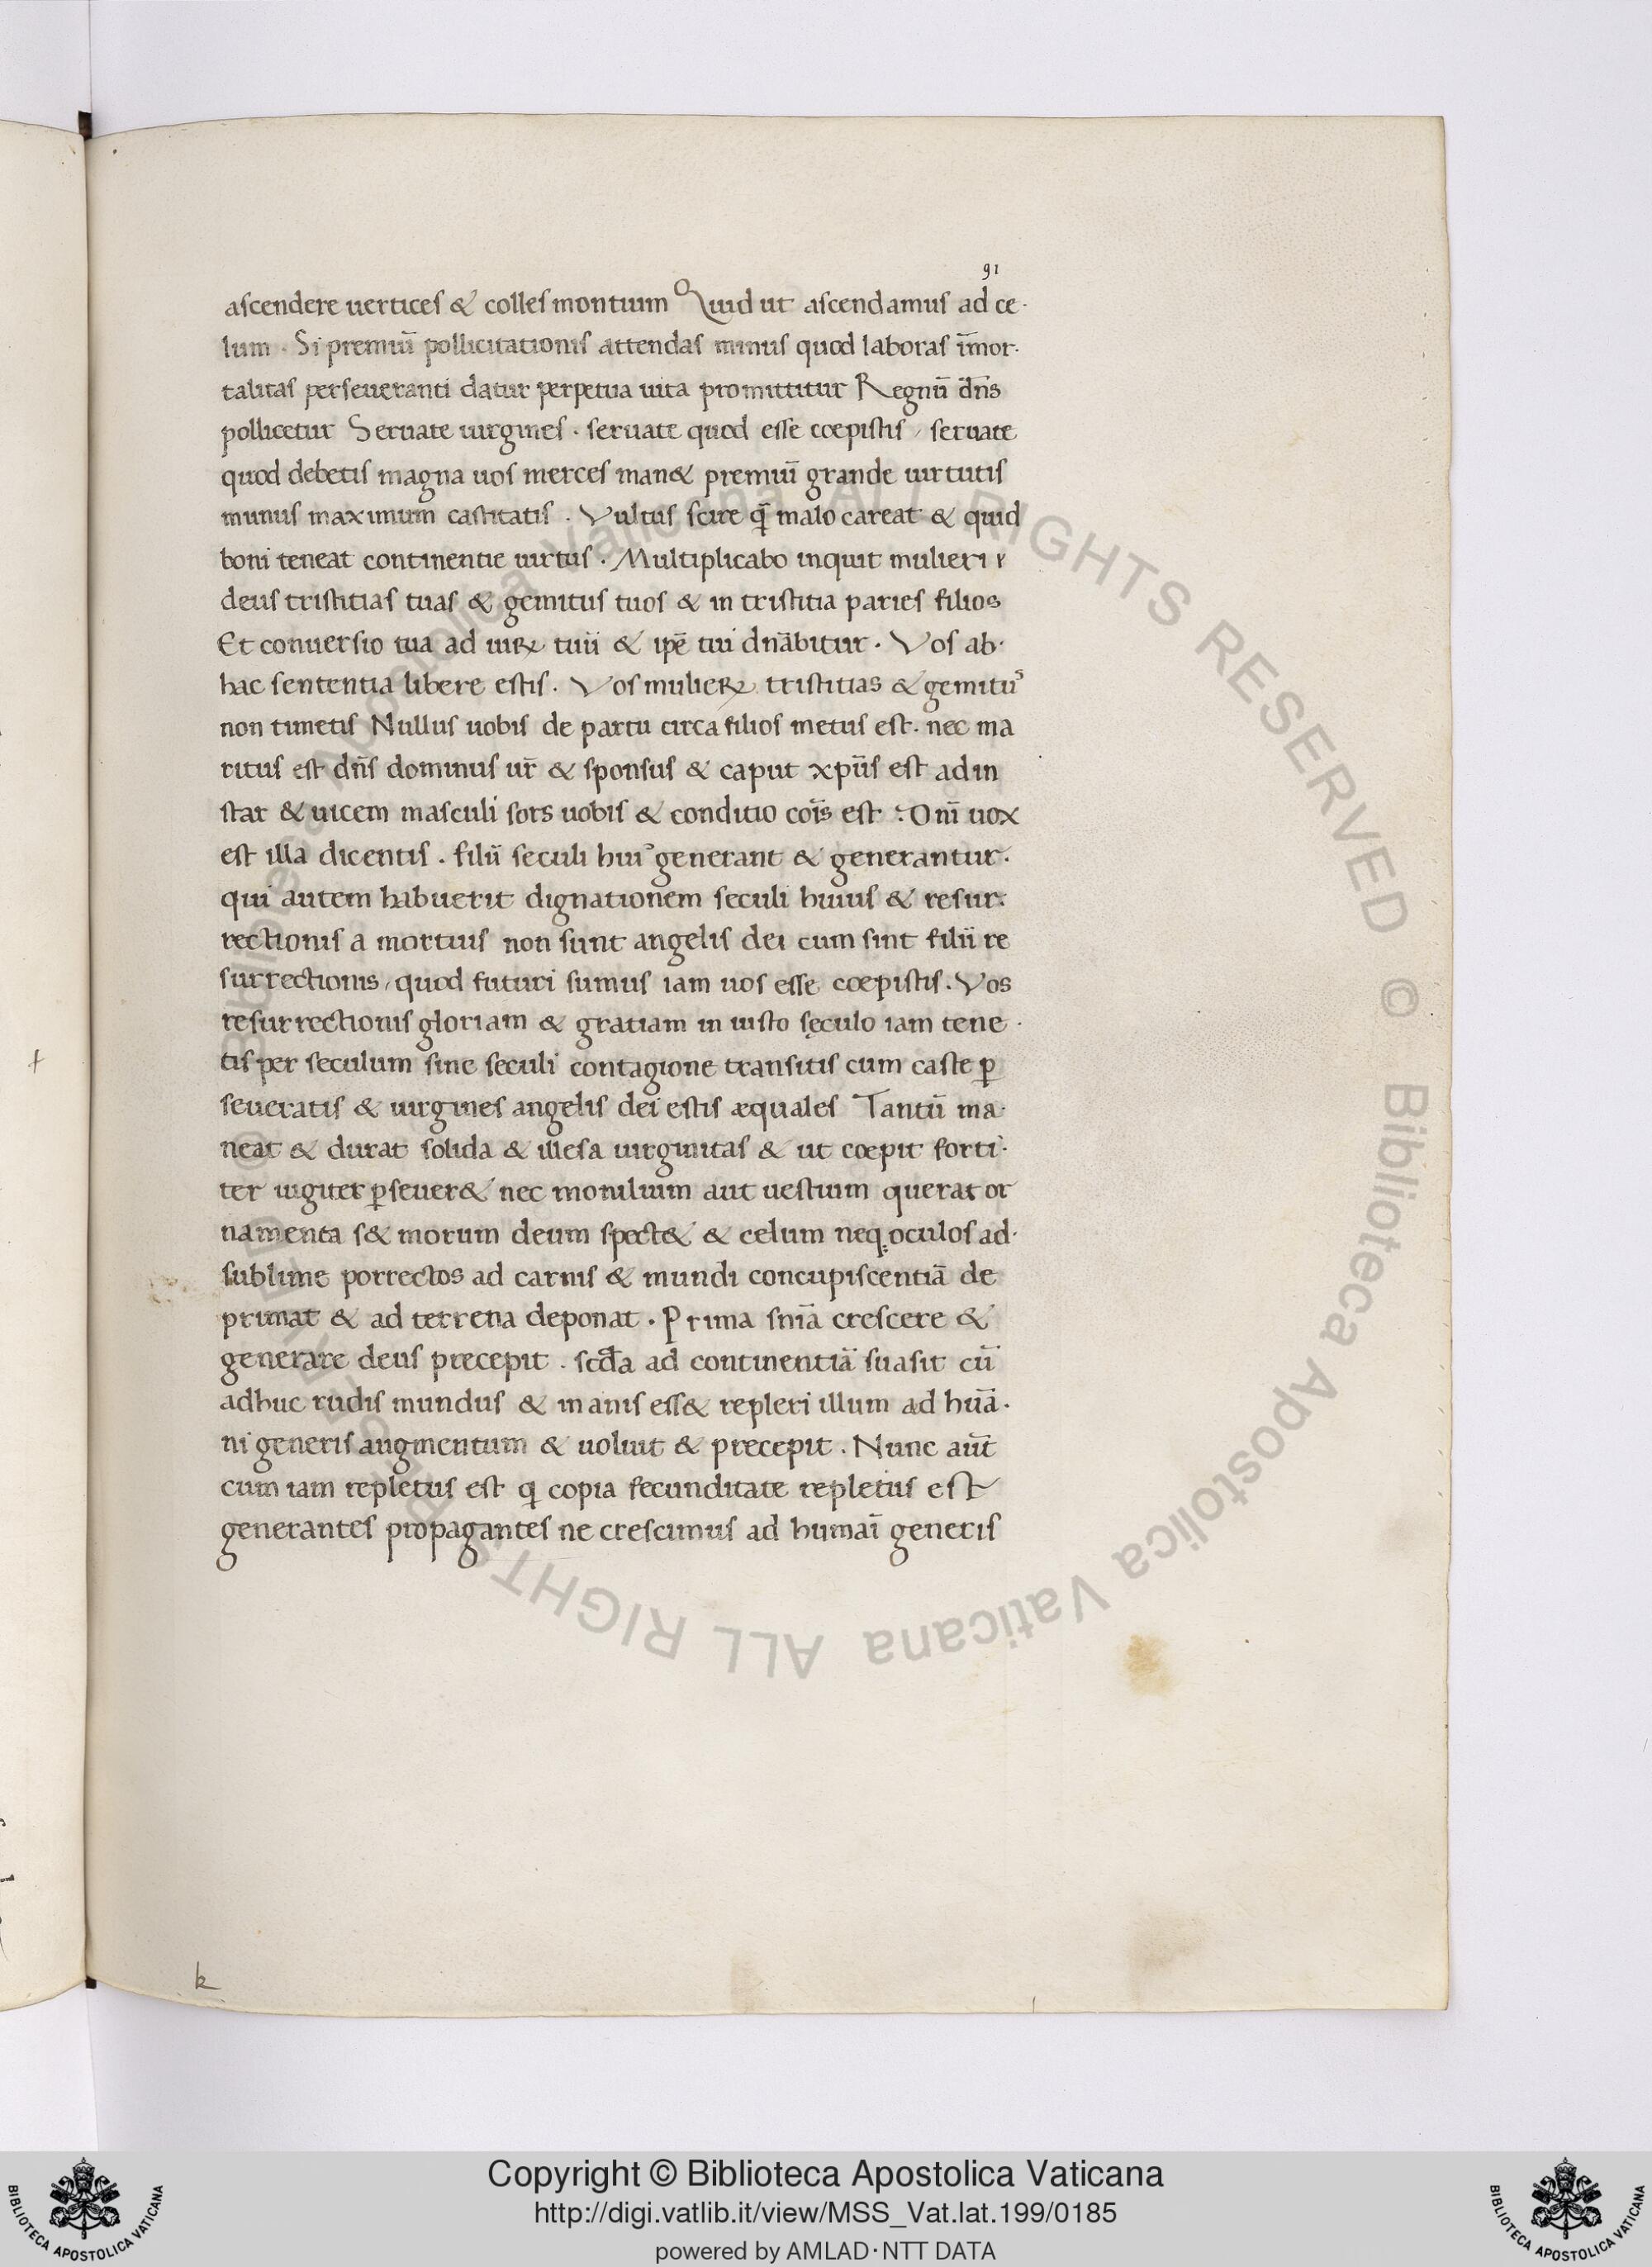 91
ascendere uertices & colles montium Quid ut ascendamus ad ce·
lum · Si premiū pollicitationis attendas minus quod laboras īmor·
talitas perseueranti datur perpetua uita promittitur Regnū dn̄s
pollicetur Seruate uirgines · seruate quod esse coepistis / seruate
quod debetis magna uos merces man& premiū grande uirtutis
munus maximum castitatis · Vultus scire q̄ malo careat & quid
boni teneat continentie uirtus · Multiplicabo inquit mulieri
deus tristitias tuas & gemitus tuos & in tristitia paries filios
Et conuersio tua ad uiꝝ tuū & ipē tui dn̄abitur · Vos ab·
hac sententia libere estis · Vos mulieꝝ tristitias & gemituꝰ
non timetis Nullus uobis de partu circa filios metus est · nec ma
ritus est dn̄s dominus ur̄ & sponsus & caput xpūs est ad in
star & uicem masculi sors uobis & conditio coīs est · Dnī uox
est illa dicentis · filii seculi huiꝰ generant & generantur ·
qui autem habuerit dignationem seculi huius & resur·
rectionis a mortuis non sunt angelis dei cum sint filii re
surrectionis / quod futuri sumus iam uos esse coepistis · Vos
resurrectionis gloriam & gratiam in iusto sęculo iam tene ·
tis per seculum sine seculi contagione transitis cum caste ꝑ
seueratis & uirgines angelis dei estis æquales Tantū ma·
neat & durat solida & illesa uirginitas & ut coepit forti·
ter iugiter ꝑseuer& nec monilium aut uestium querat or
namenta s& morum deum spect& & celum neqꝫ oculos ad·
sublime porrectos ad carnis & mundi concupiscentiā de
primat & ad terrena deponat · Prima snīa crescere &
generare deus precepit · scd̄a ad continentiā suasit cū
adhuc rudis mundus & inanis ess& repleri illum ad hūa·
ni generis augmentum & uoluit & precepit · Nunc aūt
cum iam repletus est ꝗ copia fecunditate repletus est
generantes propagantes ne crescimus ad humaī generis
k
Copyright © Biblioteca Apostolica Vaticana
http://digi.vatlib.it/view/MSS_Vat.lat.199/0185
powered by AMLAD·NTT DATA
BIBLIOTECA APOSTOLICA VATICANA
BIBLIOTECA APOSTOLICA VATICANA
© Biblioteca Apostolica Vaticana ALL RIGHTS RESERVED © Biblioteca Apostolica Vaticana ALL RIGHTS RESERVED